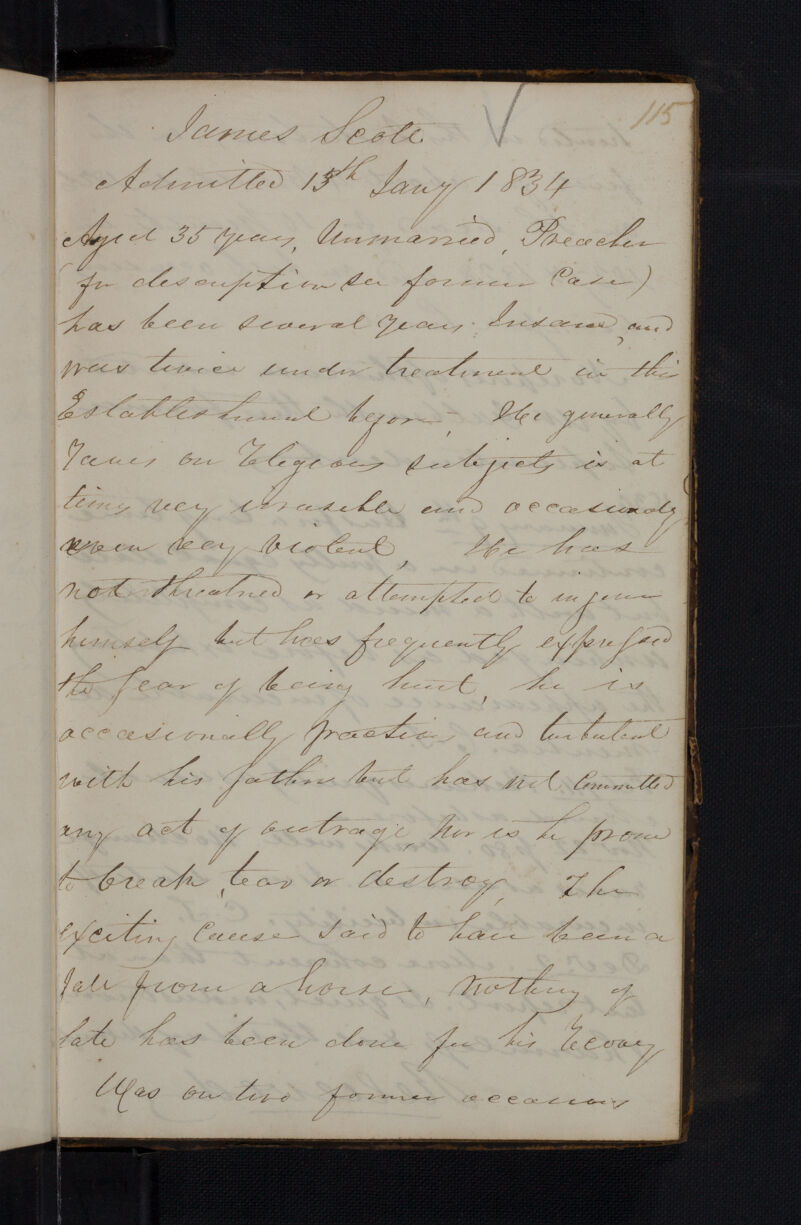 115
James Scott
Admitted 15th Jany 1834
Aged 35 years, Unmarried, Preacher
(for description see former Case)
has been several years Insane, and
was twice under treatment in this
Establishment before, He generally
raves on Religious subjects is at
times very irrascible and occasionaly
even very violent, He has
not threatned or attempted to injure
himself but has frequently expressed
the fear of being hurt, he is
occasionally fractious and turbulent
with his father but has not Committed
any act of outrage, nor is he prone
to break, tear or destroy, The
exciting Cause said to have been a
fall from a horse, nothing of
late has been done for his Recovery
Was on two former occasions